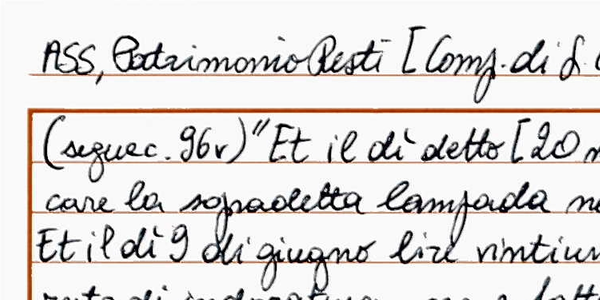 ASS, Patrimonio Resti [Comp. di S.
(segue c. 96v) "Et il dì detto [20
care la sopradetta lampada
Et il dì 9 di giugno lire